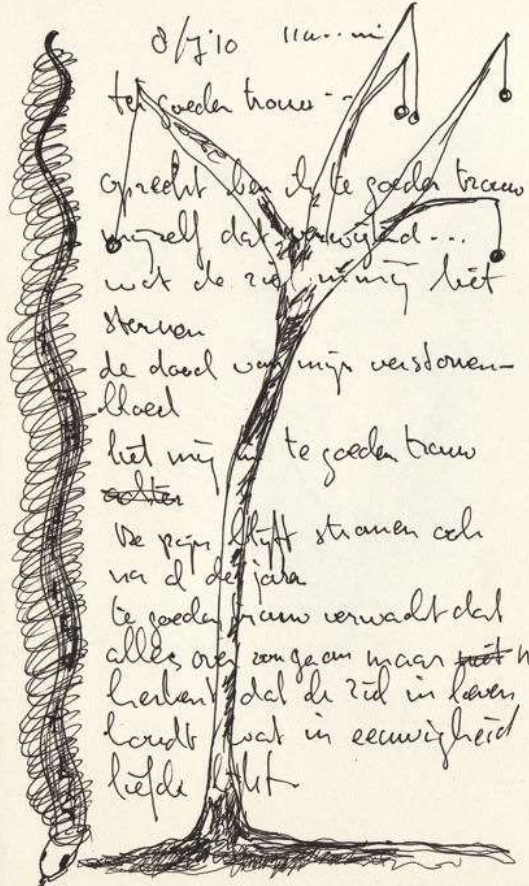 8/7'10
te goeder trouw --
oprecht ben ik te goeder trouw
mijzelf dat verwijtend...
wat de ziel in mij liet
sterven
de dood van mijn verstorven-
bloed
liet mij te goeder trouw
achter
De pijn blijft stromen ook
na al de jaren
te goeder trouw verwacht dat
alles over zou gaan maar niet
herkent dat de ziel in leven
houdt wat in eeuwigheid
liefde lijkt